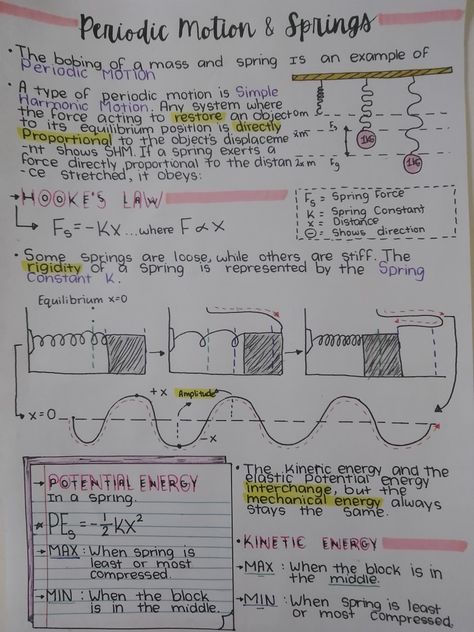 Periodic Motion & Springs
• The bobing of a mass and spring is an example of
Periodic Motion
• A type of periodic motion is Simple
Harmonic Motion. Any system where
the force acting to restore an object
to its equilibrium position is directly
Proportional to the object's displaceme
-nt shows SHM. If a spring exerts a
force directly proportional to the distan
-ce stretched, it obeys:
0m
xm
2xm
Fs
Fg
1KG
1KG
→ HOOKE'S LAW
Fs = -Kx ...where F ∝ x
Fs = Spring Force
K = Spring Constant
x = Distance
⊖ = Shows direction
• Some springs are loose, while others are stiff. The
rigidity of a spring is represented by the Spring
Constant K.
Equilibrium x=0
x=0
+x
Amplitude
-x
→ POTENTIAL ENERGY
In a spring.
* PEs = -½Kx²
→ MAX: When spring is
least or most
compressed.
→ MIN: When the block
is in the middle.
• The Kinetic energy and the
elastic potential energy
interchange, but the
mechanical energy always
stays the same.
• KINETIC ENERGY
→ MAX: When the block is in
the middle.
→ MIN: When spring is least
or most compressed.